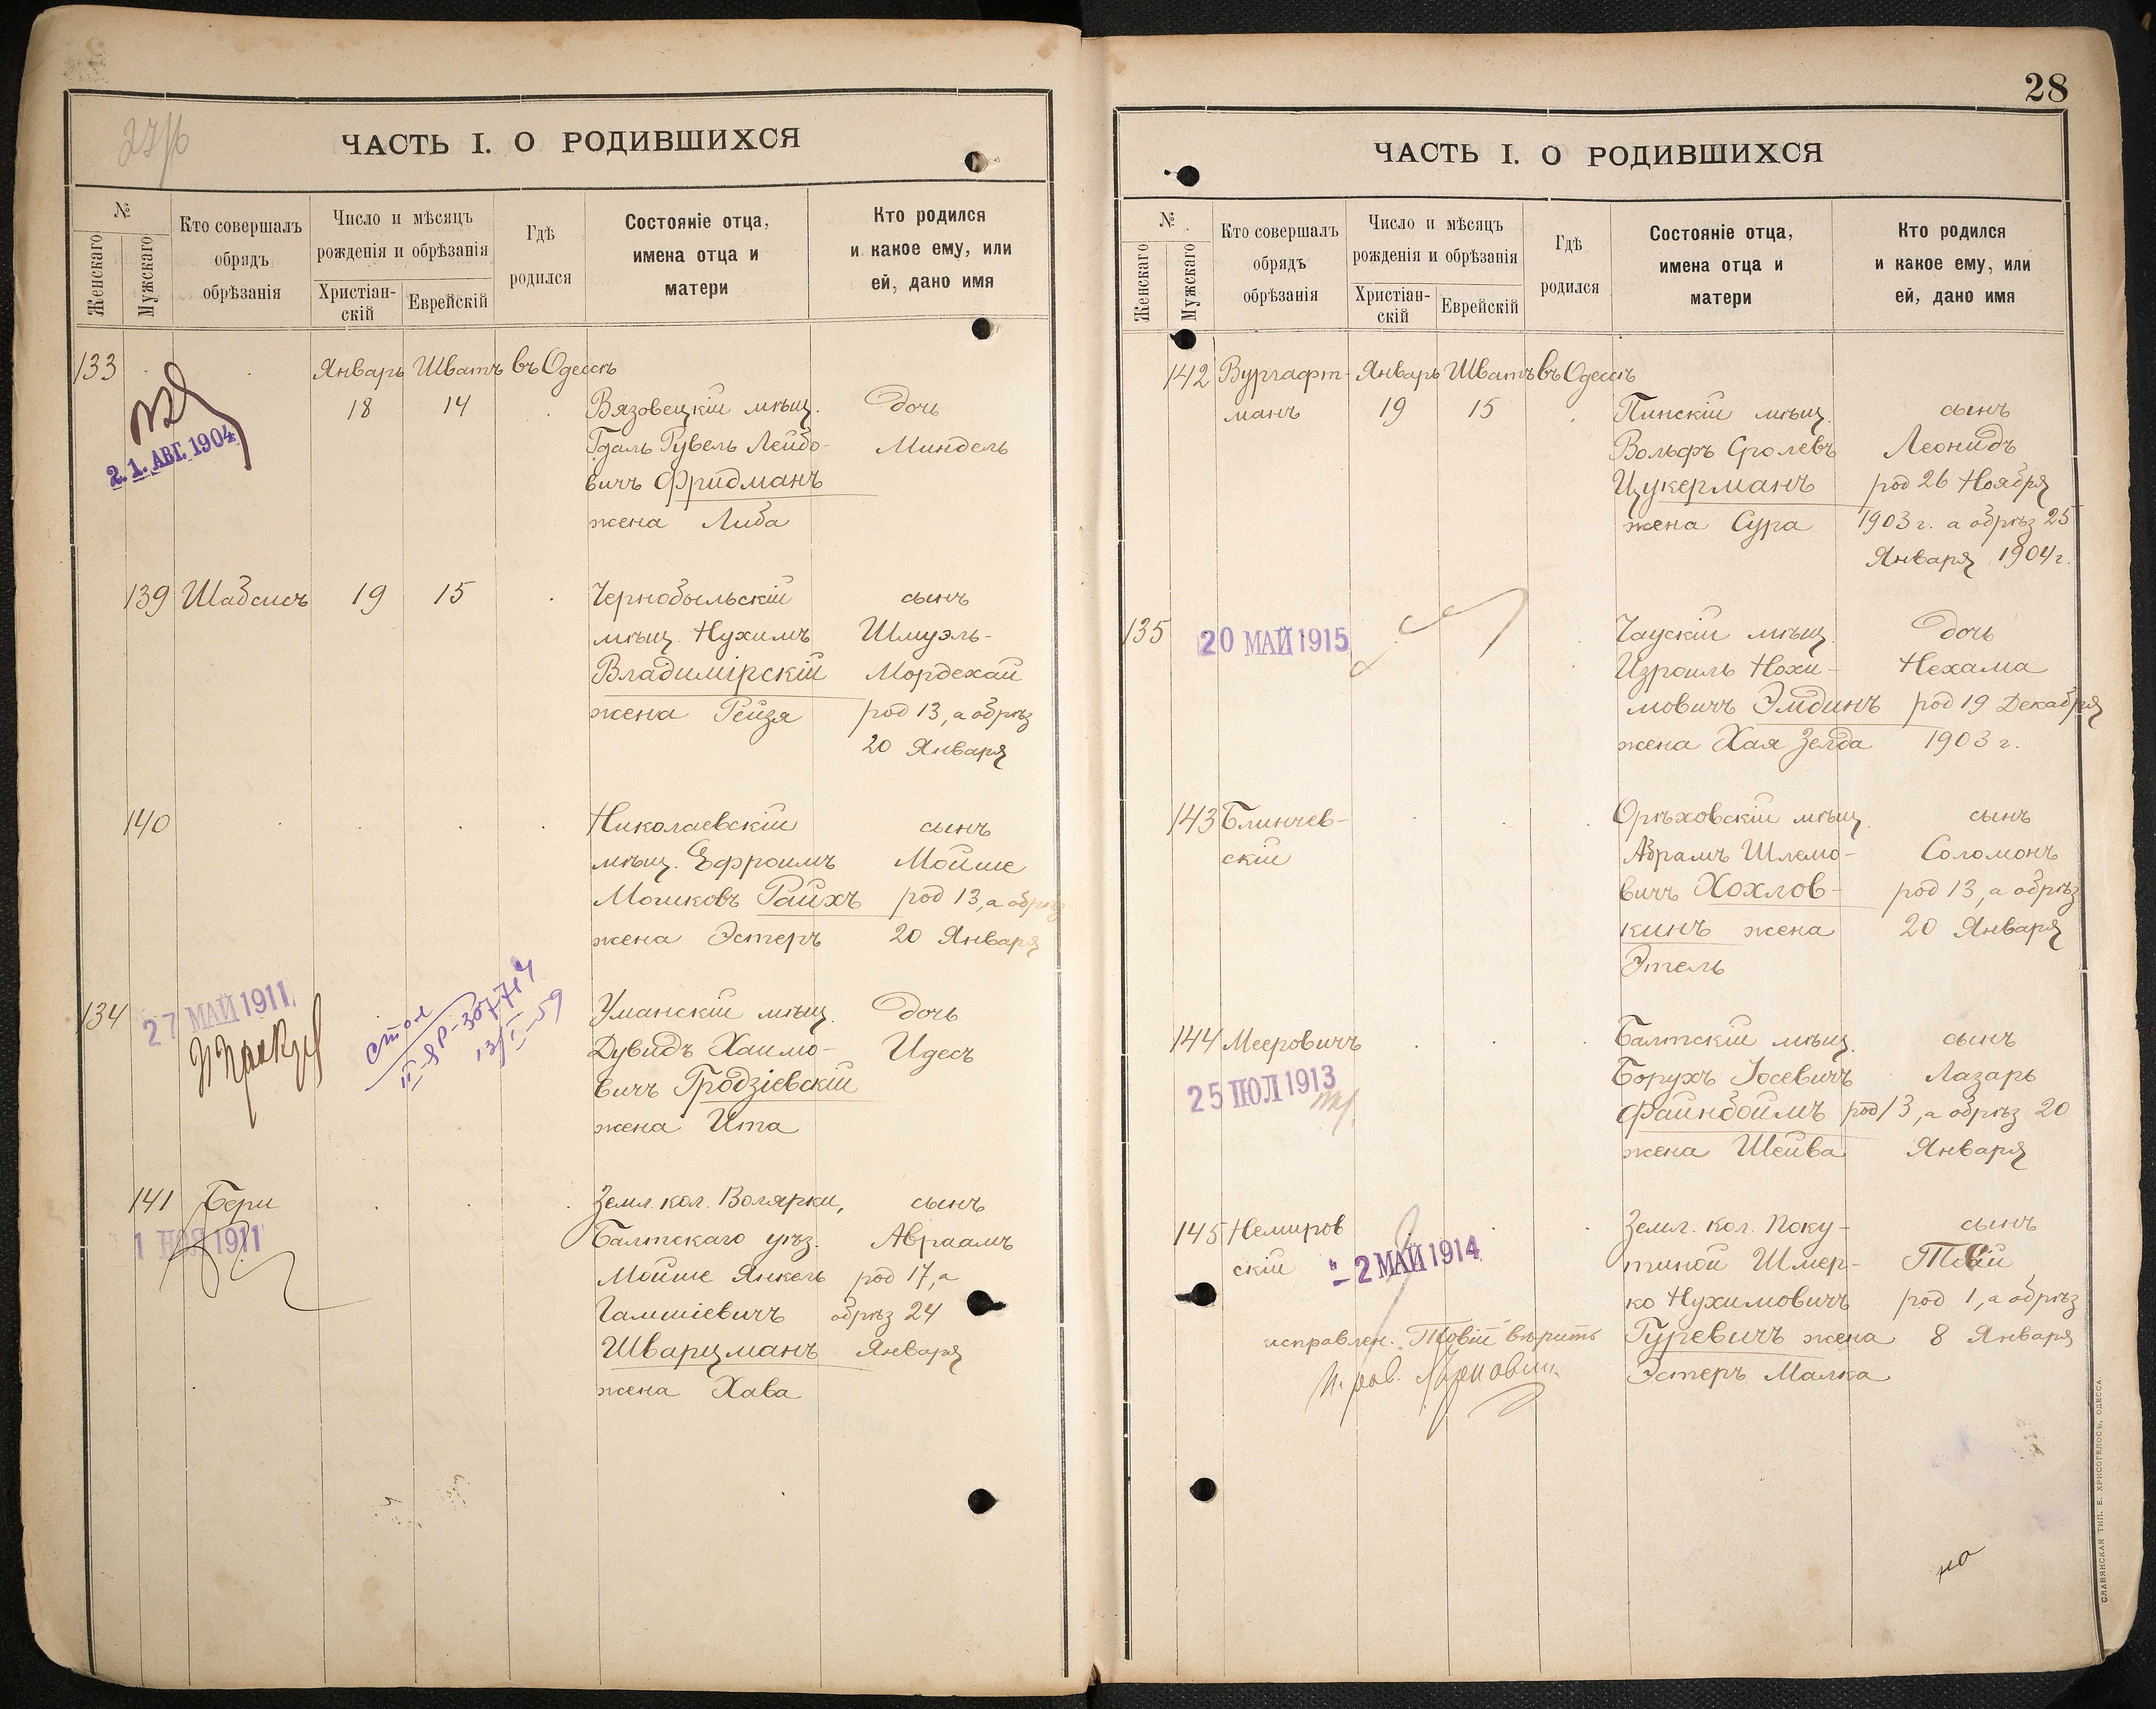 27/6
ЧАСТЬ I. О РОДИВШИХСЯ
№
Женскаго
Мужскаго
Кто совершалъ
обрядъ
обрѣзанія
Число и мѣсяцъ
рожденія и обрѣзанія
Христіан-
скій
Еврейскій
Гдѣ
родился
Состояніе отца,
имена отца и
матери
Кто родился
и какое ему, или
ей, дано имя
133 Январь Шватъ въ Одессѣ
18 14 Вязовецкій мѣщ. дочь
Гдаль Рувель Лейбо- Миндель
вичъ Фридманъ
жена Либа
21. АВГ. 1904
139 Шабсисъ 19 15 Чернобыльскій сынъ
мѣщ. Нухимъ Шмуэль-
Владимірскій Мордехай
жена Рейзя род 13, а обрѣз
20 Января
140 Николаевскій сынъ
мѣщ. Ефроимъ Мойше
Мошковъ Райхъ род 13, а обрѣз
жена Эстеръ 20 Января
134 27 МАЙ 1911 Уманскій мѣщ. дочь
Дувидъ Хаимо- Идесъ
вичъ Гродзіевскій
жена Ита
стол
13/I-59
141 Бери Земл. кол. Волярки, сынъ
1 НОЯ 1911 Балтскаго уѣз. Авраамъ
Мойше Янкель род 17, а
Гамшіевичъ обрѣз 24
Шварцманъ Января
жена Хава
28
ЧАСТЬ I. О РОДИВШИХСЯ
№
Женскаго
Мужскаго
Кто совершалъ
обрядъ
обрѣзанія
Число и мѣсяцъ
рожденія и обрѣзанія
Христіан-
скій
Еврейскій
Гдѣ
родился
Состояніе отца,
имена отца и
матери
Кто родился
и какое ему, или
ей, дано имя
142 Вургафт- Январь Шватъ въ Одессѣ
манъ 19 15 Пинскій мѣщ. сынъ
Вольфъ Сролевъ Леонидъ
Цукерманъ род 26 Ноября
жена Сура 1903 г. а обрѣз 25
Января 1904 г.
135 20 МАЙ 1915 Чаускій мѣщ. дочь
Израиль Нохи- Нехама
мовичъ Эмдинъ род 19 Декабря
жена Хая Зелда 1903 г.
143 Блинчев- Орѣховскій мѣщ. сынъ
скій Абрамъ Шлемо- Соломонъ
вичъ Хохлов- род 13, а обрѣз
кинъ жена 20 Января
Этель
144 Мееровичъ Балтскій мѣщ. сынъ
25 ІЮЛ 1913 Борухъ Іосевичъ Лазарь
Файнбоймъ род 13, а обрѣз 20
жена Шейва Января
145 Немиров Земл. кол. Поку- сынъ
скій - 2 МАЙ 1914 тиной Шмер- Товій
ко Нухимовичъ род 1, а обрѣз
исправлен. "Товій" вѣрить Гуревичъ жена 8 Января
Эстеръ Малка
но
СЛАВЯНСКАЯ ТИП. Е. ХРИСОГЕЛОСЪ, ОДЕССА.